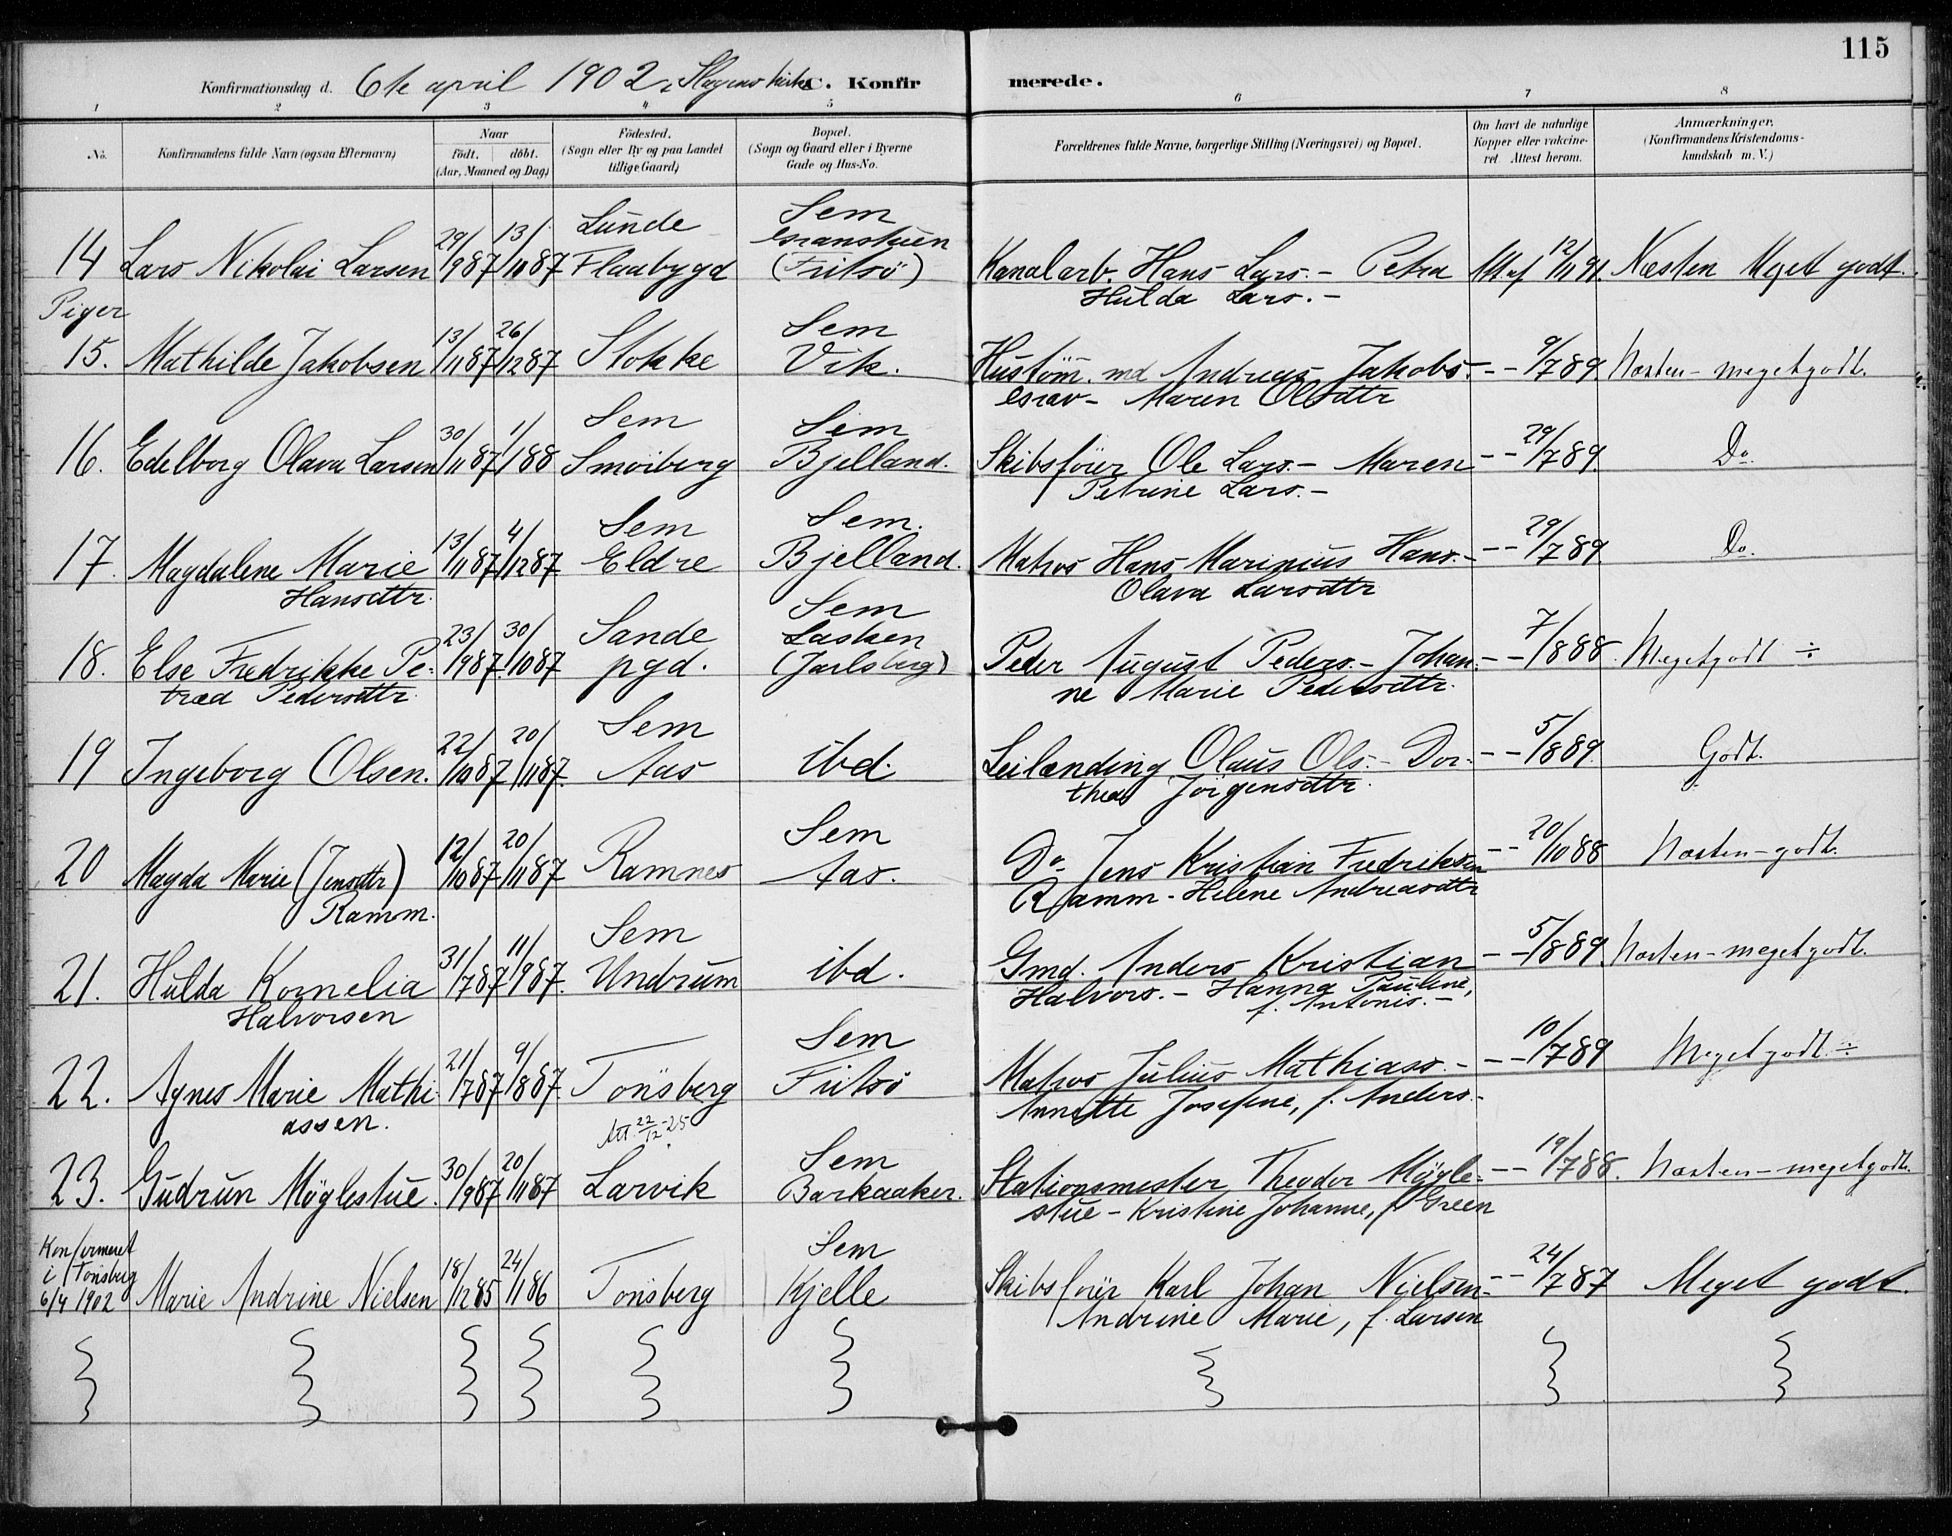 115
Konfirmationsdag d. 6te april 1902 i Slagens kirke C. Konfirmerede.
1 2 3 4 5 6 7 8
No. Konfirmandens fulde Navn (ogsaa Efternavn) Naar födt. döbt. (Aar, Maaned og Dag) Födested. (Sogn eller By og paa Landet tillige Gaard) Bopæl. (Sogn og Gaard eller i Byerne Gade og Hus-No. Forældrenes fulde Navne, borgerlige Stilling (Næringsvei) og Bopæl. Om havt de naturlige Kopper eller vakcineret Attest herom. Anmærkninger. (Konfirmandens Kristendomskundskab m. V.)
14 Lars Nikolai Larsen 29/9 87 13/10 87 Lunde Flaabygd Sem Granstuen (Fritsö) Kanalarb. Hans Lars.- Petra Hulda Lars.- Att. af 12/11 91. Næsten Meget godt.
Piger
15. Mathilde Jakobsen 13/11 87 26/12 87 Stokke Sem Vik. Hustöm. md Andreas Jakobs.- Grav- Maren Olsdttr -- 9/7 89 Næsten-megetgodt.
16. Edelborg Olava Larsen 30/11 87 1/1 88 Sem Smöiberg Sem Bjelland. Skibsförer Ole Lars.- Maren Petrine Lars.- -- 29/7 89 Do.
17. Magdalene Marie Hansdttr. 13/11 87 4/12 87 Sem Eldre Sem. Bjelland. Matros Hans Marinius Hans.- Olava Larsdttr -- 29/7 89. Do.
18. Else Fredrikke Petræa Pedersdttr. 23/9 87 30/10 87 Sande pgd. Sem Lasken (Jarlsberg) Peder August Peders.- Johanne Marie Pedersdttr. -- 7/8 88. Megetgodt ÷
19 Ingeborg Olsen. 22/10 87 20/11 87. Sem Aas ibd. Leilænding Olaus Ols.- Dorthea Jörgensdttr. -- 5/8 89. Godt.
20 Magda Marie (Jensdttr) Ramm. 12/10 87 20/11 87 Ramnes Sem Aas. Do. Jens Kristian Fredriksen Ramm - Helene Andreasdttr -- 20/10 88 Næsten-godt.
21. Hulda Kornelia Halvorsen 31/7 87 11/9 87. Sem Undrum ibd. Gmd. Anders Kristian Halvors.- Hanna Pauline, f. Antonis.- -- 5/8 89. Næsten-megetgodt.
22. Agnes Marie Mathiassen. 21/7 87 9/8 87. Tönsberg Sem Fritsö Matros Julius Mathiass.- Annette Josefine, f. Anders.- -- 10/7 89 Megetgodt.÷
Att. 22/12-25
23. Gudrun Møglestue. 30/9 87 20/11 87 Larvik Sem Barkaaker. Stationsmester Theodor Møglestue - Kristine Johanne, f. Green -- 19/7 88. Næsten-megetgodt.
Konfirmeret i Tönsberg 6/4 1902 Marie Andrine Nielsen 18/12 85 24/1 86 Tönsberg Sem Kjelle Skibsförer Karl Johan Nielsen- Andrine Marie, f. Larsen -- 24/7 87 Meget godt.